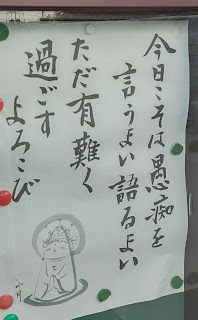 今日こそは愚痴を
言うまい語るまい
ただ有難く
過ごす
よろこび